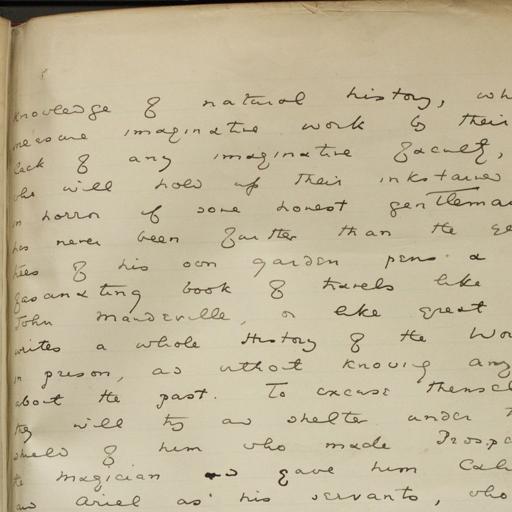 knowledge of natural history, wh
measure imaginative work by their
lack of any imaginative faculty,
who will hold up their inkstained
in horror if some honest gentleman
has never been further than the ge
trees of his own garden pens a
fascinating book of travels like
John Mandeville, or like great
writes a whole History of the Wor
in prison, and without knowing any
about the past. To excuse themsel
they will try and shelter under t
shield of him who made Prospe
the magician and gave him Cali
and Ariel as his servants, who